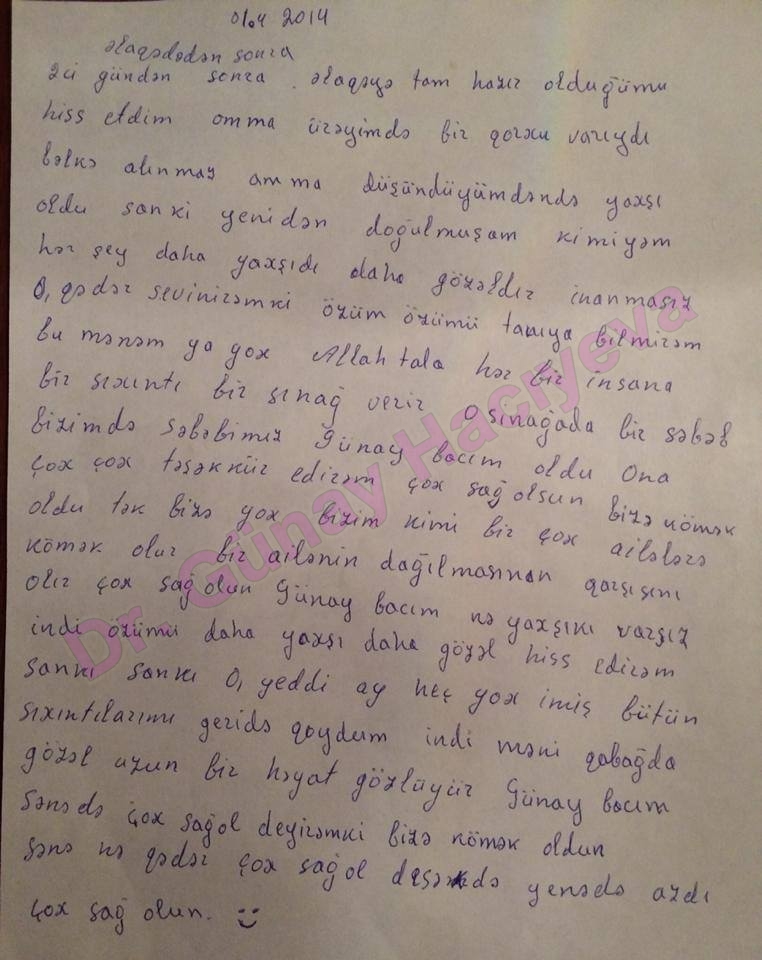 01.04 2014
əlaqədədən sonra
2ci gündən sonra əlaqəyə tam hazır olduğumu
hiss etdim omma ürəyimdə bir qorxu varıydı
bəlkə alınmaz amma düşündüyümdəndə yaxşı
oldu sanki yenidən doğulmuşam kimiyəm
hər şey daha yaxşıdı daha gözəldir inanmasız
O, qədər sevinirəmki özüm özümü tanıya bilmirəm
bu mənəm ya yox Allah tala hər bir insana
bir sıxıntı bir sınağ verir O sınağada bir səbəb
bizimdə səbəbimiz Günay bacım oldu Ona
çox çox təşəkkür edirəm çox sağ olsun bizə kömək
oldu tək bizə yox bizim kimi bir çox ailələrə
kömək olur bir ailənin dağılmasının qarşısını
olır çox sağ olun Günay bacım nə yaxşıkı varsız
indi özümü daha yaxşı daha gözəl hiss edirəm
sankı sankı O, yeddi ay heç yox imiş bütün
sıxıntılarımı geridə qoydum indi məni qabağda
gözəl uzun bir həyat gözlüyür Günay bacım
Sənədə çox sağol deyirəmki bizə kömək oldun
sənə nə qədər çox sağol desəmdə yenədə azdı
çox sağ olun.
Dr. Günay Hacıyeva